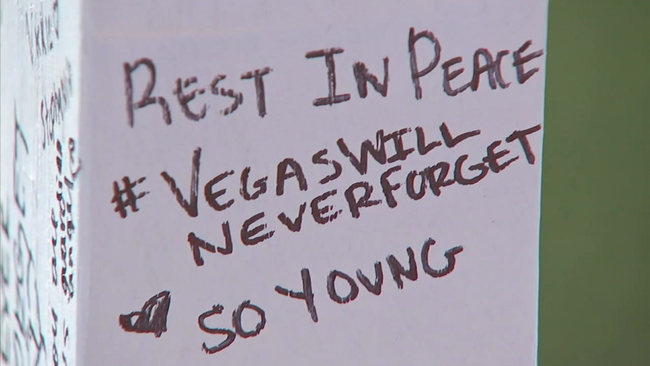 REST IN PEACE
#VEGASWILL
NEVERFORGET
♥ SO YOUNG